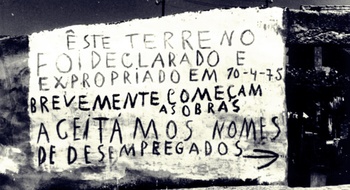 ÊSTE TERRENO
FOI DECLARADO E
EXPROPRIADO EM 10-4-75
BREVEMENTE COMEÇAM
AS OBRAS
ACEITÁMOS NOMES
DE DESEMPREGADOS